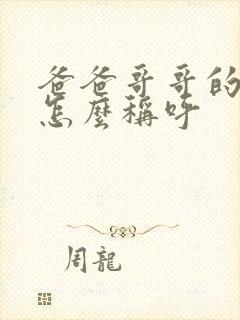 爸爸哥哥的
怎麼稱呼
周龍